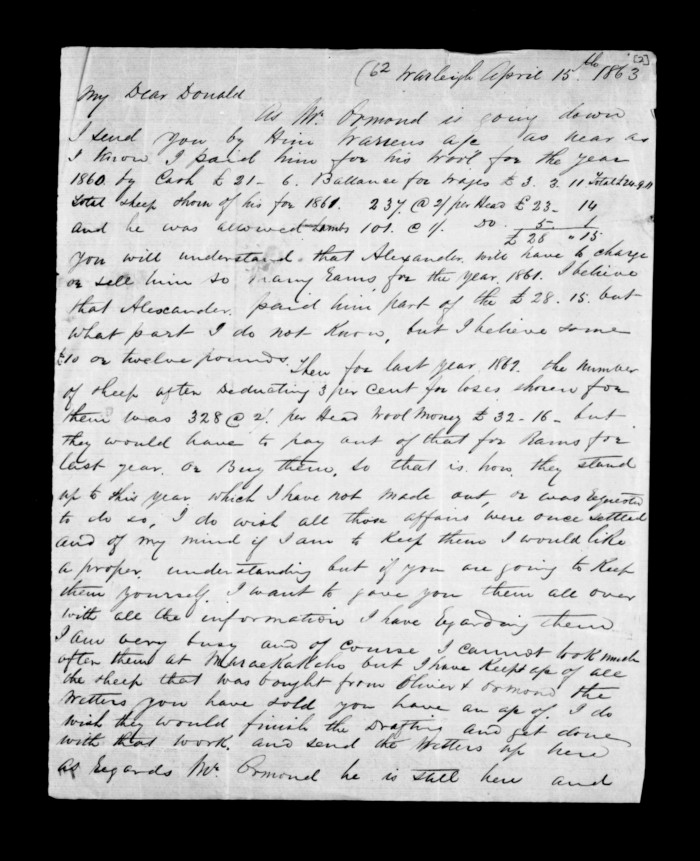 [2]
(62 Warleigh April 15th 1863
My Dear Donald
As Mr Ormond is going down
I send you by Him Warrens a/c as near as
I know I paid him for his wool for the year
1860 by Cash £21-6. Ballance for Wages £3.3.11 Total £24.9.11
Total sheep shorn of his for 1861. 237 @ 2/ per Head £23-14
and he was allowed Lambs 101. @ 1/. Do. 5-1
£28 " 15
you will understand that Alexander will have to charge
or sell him so many Rams for the year 1861. I believe
that Alexcander paid him part of the £28.15. but
what part I do not know, but I believe some
£10 or twelve pounds. Then for last year 1862. the number
of sheep after Deduating 3 per cent for loses shorn for
them was 328 @ 2/. per Head Wool Money £32-16- but
they would have to pay out of that for Rams for
last year. or Buy them, so that is how they stand
up to this year which I have not made out, or was Equested
to do so, I do wish all those affairs were once settled
and of my mind if I am to keep them I would like
a proper understanding but if you are going to keep
them yourself I want to gave you them all over
with all the information I have Egarding them
I am very busy and of course I cannot look much
after them at Maraekakaho but I have kept a/c of all
the sheep that was bought from Oliver & Ormond the
Wetters you have sold you have an a/c of. I do
wish they would finish the Drafting and get done
with that work. and send the Wetters up here
as Egards Mr. Ormond he is still here and